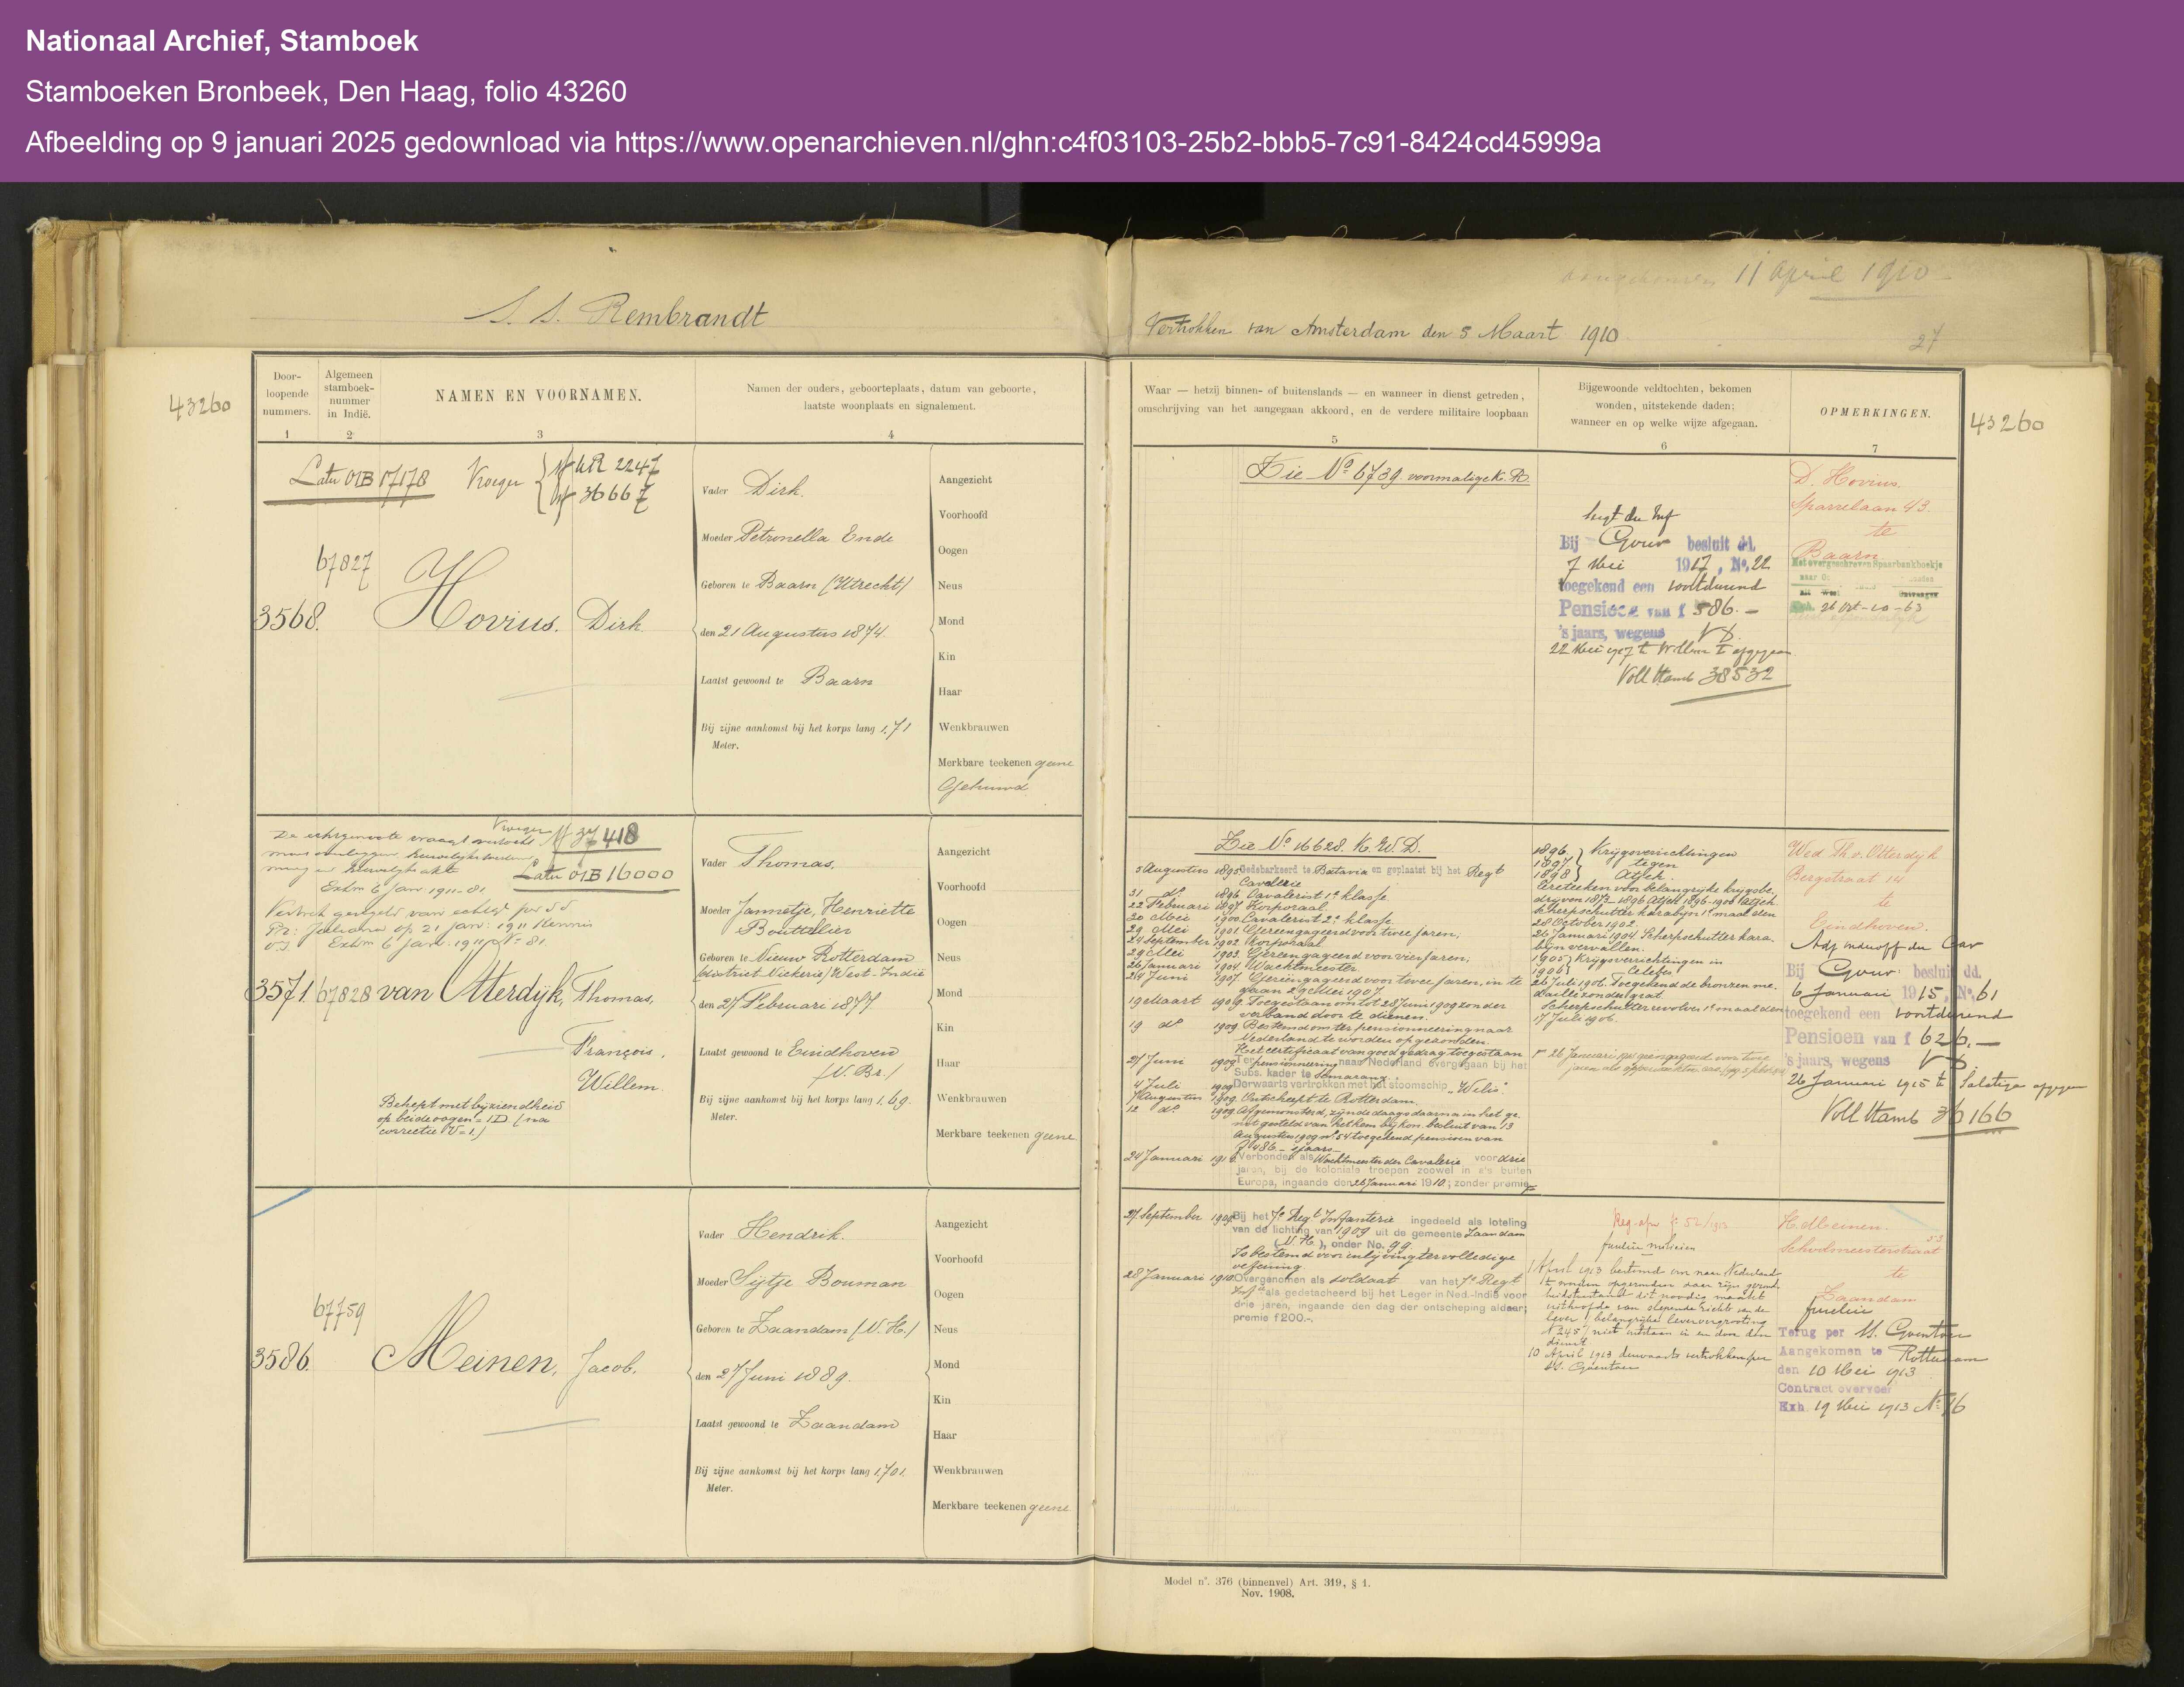 Nationaal Archief, Stamboek
Stamboeken Bronbeek, Den Haag, folio 43260
Afbeelding op 9 januari 2025 gedownload via https://www.openarchieven.nl/ghn:c4f03103-25b2-bbb5-7c91-8424cd45999a
S. S. Rembrandt
11 April 1910
Vertrokken van Amsterdam den 5 Maart 1910
27
43260
Door-
loopende
nummers.
1
Algemeen
stamboek-
nummer
in Indië.
2
NAMEN EN VOORNAMEN.
3
Namen der ouders, geboorteplaats, datum van geboorte,
laatste woonplaats en signalement.
4
Waar — hetzij binnen- of buitenslands — en wanneer in dienst getreden,
omschrijving van het aangegaan akkoord, en de verdere militaire loopbaan
5
Bijgewoonde veldtochten, bekomen
wonden, uitstekende daden;
wanneer en op welke wijze afgegaan.
6
OPMERKINGEN.
7
43260
Later OIB 17178
Vroeger
2247
36667
67827
3568.
Hovius. Dirk.
Vader Dirk.
Moeder Petronella Ende
Geboren te Baarn (Utrecht)
den 21 Augustus 1874.
Laatst gewoond te Baarn
Bij zijne aankomst bij het korps lang 1.71
Meter.
Aangezicht
Voorhoofd
Oogen
Neus
Mond
Kin
Haar
Wenkbrauwen
Merkbare teekenen geene
Gehuwd
Zie No 6739. voormalige K. R.
Bij Gouv besluit dd.
7 Mei 1917, No. 22
toegekend een voortdurend
Pensioen van f 586.-
's jaars, wegens VD.
Voll Stamb 38532
D. Hovius.
Sparrelaan 43.
te
Baarn
Met overgeschreven Spaarbankboekje
Exh. 26 Oct-10-63
De echtgenoote vraagt
Vroeger 37418
Later OIB 16000
Exhm 6 Jan 1911-81
Juliana op 21 Jan: 1911 Kennis
Exhm 6 Jan: 1911 No 81.
3571.
67828
van Otterdijk, Thomas,
François,
Willem.
Behept met bijziendheid
op beide oogen = 1D. (na
correctie V = 1.)
Vader Thomas.
Moeder Jannetje, Henriette
Bouttelier
Geboren te Nieuw Rotterdam
(district Nickerie) West-Indië
den 27 Februari 1877.
Laatst gewoond te Eindhoven
(N. Br.)
Bij zijne aankomst bij het korps lang 1.69.
Meter.
Aangezicht
Voorhoofd
Oogen
Neus
Mond
Kin
Haar
Wenkbrauwen
Merkbare teekenen geene
Zie No 16628. K. W. D.
5 Augustus 1895 Gedebarkeerd te Batavia en geplaatst bij het Regt
Cavalerie
31 do 1896. Cavalerist 1e klasse.
22 Februari 1897. Korporaal.
20 Mei 1900. Cavalerist 2e klasse.
29 Mei 1901. Gereengageerd voor twee jaren.
24 September 1902. Korporaal.
29 Mei 1903. Gereengageerd voor vier jaren,
26 Januari 1904. Wachtmeester.
24 Juni 1907. Gereëngageerd voor twee jaren, in te
gaan 29 Mei 1907.
19 Maart 1909. Toegestaan om tot 28 Juni 1909 zonder
verband door te dienen.
19 do 1909. Bestemd om ter pensionneering naar
Nederland te worden op gezonden.
Het certificaat van goed gedrag toegestaan
27 Juni 1909 Ter pensionneering naar Nederland overgegaan bij het
Subs. kader te Semarang.
4 Juli 1909 Derwaarts vertrokken met het stoomschip „Wilis”.
7 Augustus 1909. Ontscheept te Rotterdam.
12 do 1909. Afgemonsterd, zijnde daags daarna in het ge-
not gesteld van het hem bij kon. besluit van 13
Augustus 1909 no. 54 toegekend pensioen van
f 486.- 's jaars.
24 Januari 1910. Verbonden als Wachtmeester der Cavalerie voor drie
jaren, bij de koloniale troepen zoowel in als buiten
Europa, ingaande den 26 Januari 1910; zonder premie
1896. } Krijgsverrichtingen
1897 } tegen
1898 } Atjeh.
Eereteeken voor belangrijke krijgsbe-
drijven 1873-1896 Atjeh 1896-1900 Atjeh
Scherpschutter karabijn 1e maal den
28 October 1902.
26 Januari 1904. Scherpschutter kara-
bijn vervallen.
1905 } Krijgsverrichtingen in
1906 } Celebes.
26 Juli 1906. Toegekend de bronzen me-
daille zonder grat.
Scherpschutter revolver 1e maal den
17 Juli 1906.
Wed. Th. v. Otterdijk
Bergstraat 14
te
Eindhoven.
Adj. onderoff der Cav
Bij Gouv: besluit dd.
6 Januari 1915, No. 61
toegekend een voortdurend
Pensioen van f 626.-
's jaars, wegens VD.
26 Januari 1915 te Salatiga afgegaan
Voll Stamb 36166
67759
3586.
Meinen, Jacob.
Vader Hendrik.
Moeder Sijtje Bouman
Geboren te Zaandam (N. H.)
den 27 Juni 1889.
Laatst gewoond te Zaandam
Bij zijne aankomst bij het korps lang 1.701.
Meter.
Aangezicht
Voorhoofd
Oogen
Neus
Mond
Kin
Haar
Wenkbrauwen
Merkbare teekenen geene
27 September 1909 Bij het 7e Regt Infanterie ingedeeld als loteling
van de lichting van 1909 uit de gemeente Zaandam
(N. H.), onder No. 99.
Is bestemd voor inlijving ter volledige
oefening.
28 Januari 1910 Overgenomen als soldaat van het 7e Regt
Inf. als gedetacheerd bij het Leger in Ned.-Indië voor
drie jaren, ingaande den dag der ontscheping aldaar;
premie f 200.-.
fuselier milicien
1 April 1913 bestemd om naar Nederland
te worden opgezonden
10 April 1913 derwaarts vertrokken per
SS. Goentoer
H. Meinen.
Schoolmeesterstraat 53
te
Zaandam
fuselier
Terug per SS. Goentoer
Aangekomen te Rotterdam
den 10 Mei 1913
Contract overvoer
Exh. 19 Mei 1913 No. 16
Model no. 376 (binnenvel) Art. 319, § 1.
Nov. 1908.